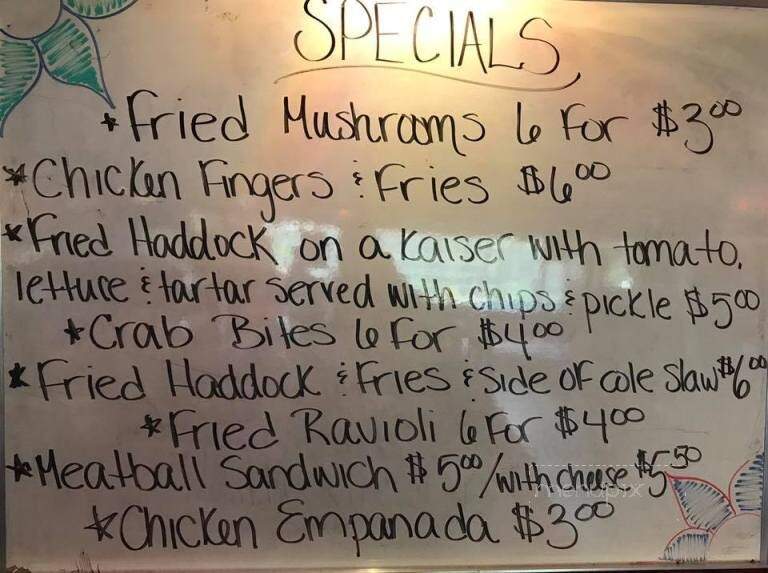 SPECIALS
*Fried Mushrooms 6 For $3.00
*Chicken Fingers & Fries $6.00
*Fried Haddock on a Kaiser with tomato,
lettuce & tartar served with chips & pickle $5.00
*Crab Bites 6 For $4.00
*Fried Haddock & Fries & Side of cole slaw $6.00
*Fried Ravioli 6 For $4.00
*Meatball Sandwich $5.00/with cheese $5.50
menupix
*Chicken Empanada $3.00